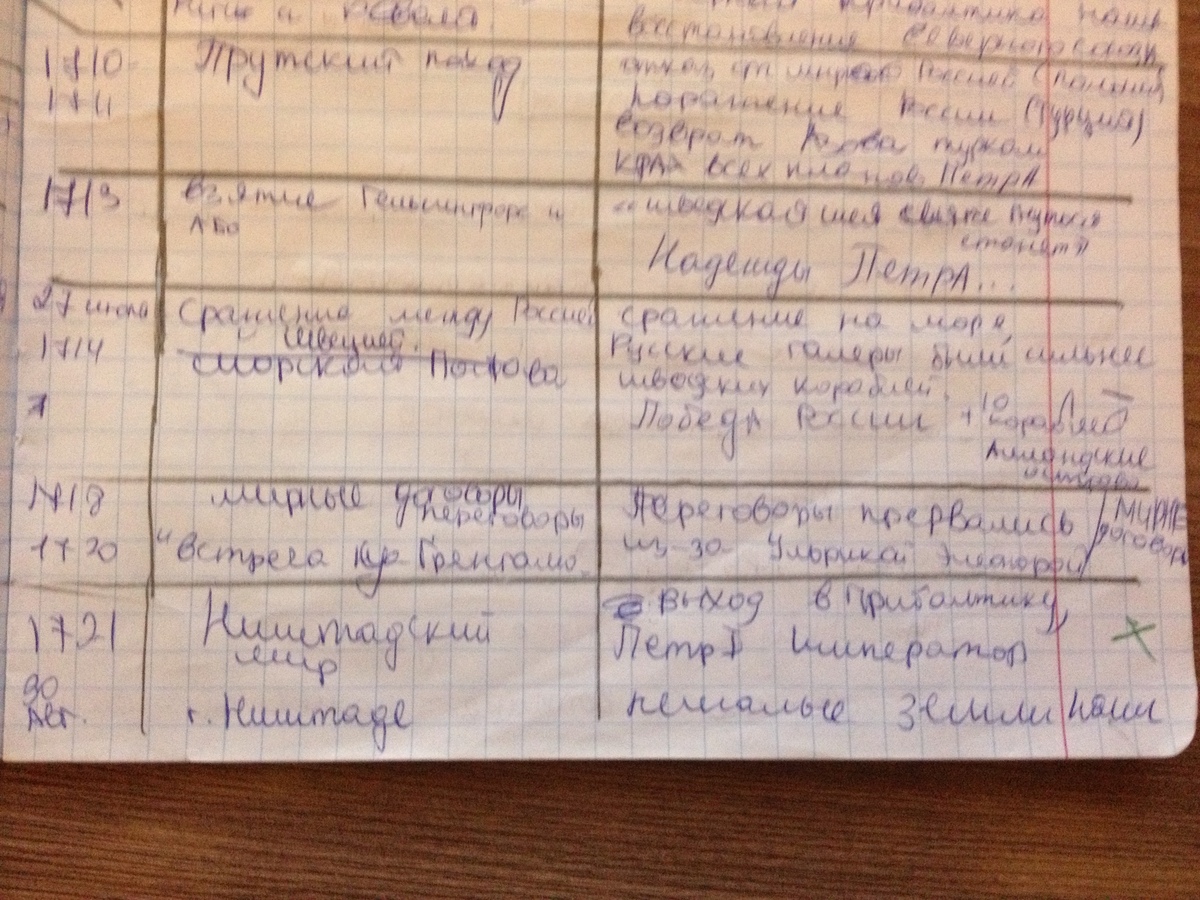 Риги и Ревеля.
Прибалтика наша
восстановление Северного союза
1710- Прутский поход
1711
отказ от мира с Россией
поражение России (Турция)
возврат Азова туркам
крах всех планов ПетрА
1713 взятие Гельсингфорса и
Або
"шведская шея мягче гнуться
станет"
Надежды ПетрА...
27 июля Сражение между Россией
Швецией.
1714 морской
сражение на море,
Русские галеры были сильнее
шведских кораблей.
Победа России + 10 кораблей
Аландские
острова
1718 мирные договоры
переговоры
1720 "встреча у о. Гренгамо
Переговоры прервались
из-за Ульрикой Элеонорой
Мирные
договоры
1721 Ништадский
мир
30
Авг. г. Ништаде
выход в Прибалтику,
Петр I император
немалые земли наши